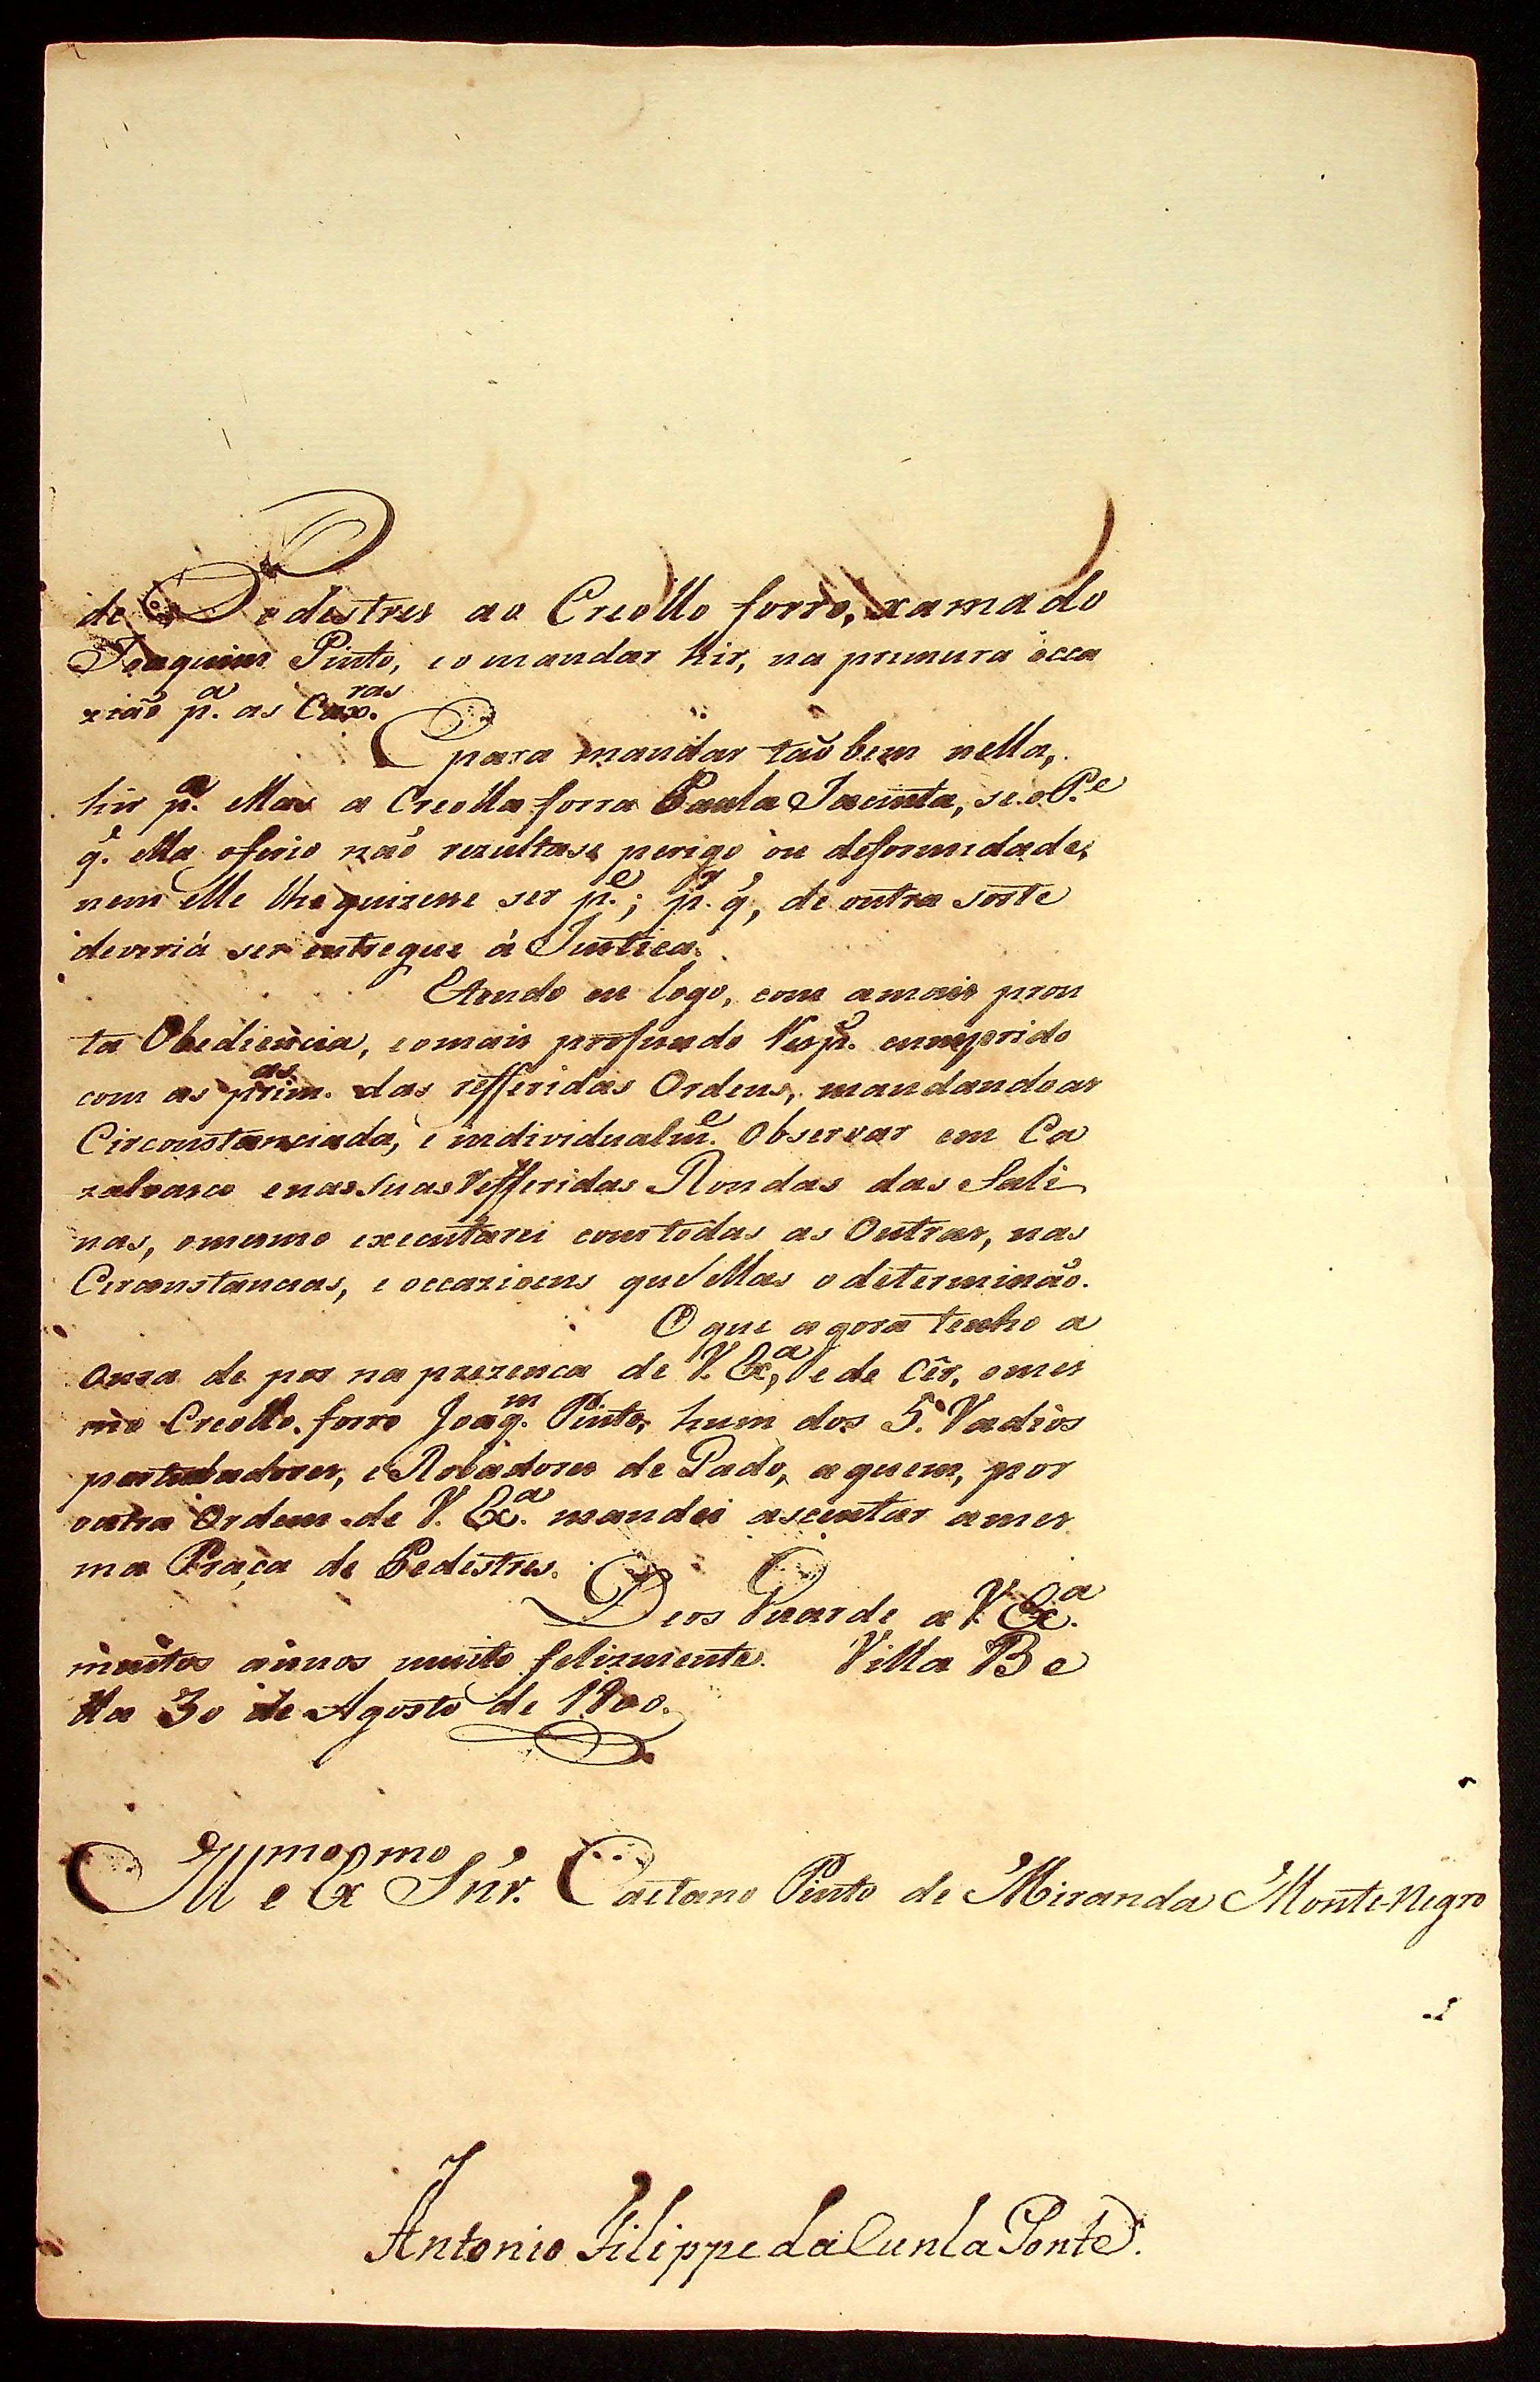 de Pedestres ao Creollo forro, xamado
Joaquim Pinto, eo mandar hir, na primeira occa
zião p.ª as Cax.ras
E para mandar tão bem nella,
hir p.ª ellas a Creolla forra Paula Jacinta, se o P.e
q̃. ella oferio não rezultase perigo ou desformidade,
nem elle lhe quizesse ser p.e; p.r q̃, de outra sorte
deveriá ser entregue á Justica.
Etendo eu logo, com amais pron
ta Obediencia, eomais profundo Resp.º cumprido
com as prim.as das refferidas Ordens, mandandoas
Circonstanciada, e individualm.e Observar em Ca
zalvasco enas suas refferidas Rondas das Sali
nas, omesmo executarei comtodas as Outras, nas
Circonstancias, e occazioens que ellas o determinão.
O que agora tenho a
onra de por na prezenca de V. Ex.ª, e de cêr, omes
mo Creollo forro Joaq.m Pinto, hum dos 5. Vadios
perturbadores, e Robadores de Gado, aquem, por
outra Ordem de V. Ex.ª mandei ascentar ames
ma Praça de Pedestres.
Deos Guarde a V. Ex.ª
muitos ánnos muito felizmente. Villa Be
lla 30 de Agosto de 1800.
Ill.mo e Ex.mo Snr. Caetano Pinto de Miranda Monte-Negro
Antonio Filippe da Cunha Ponte.